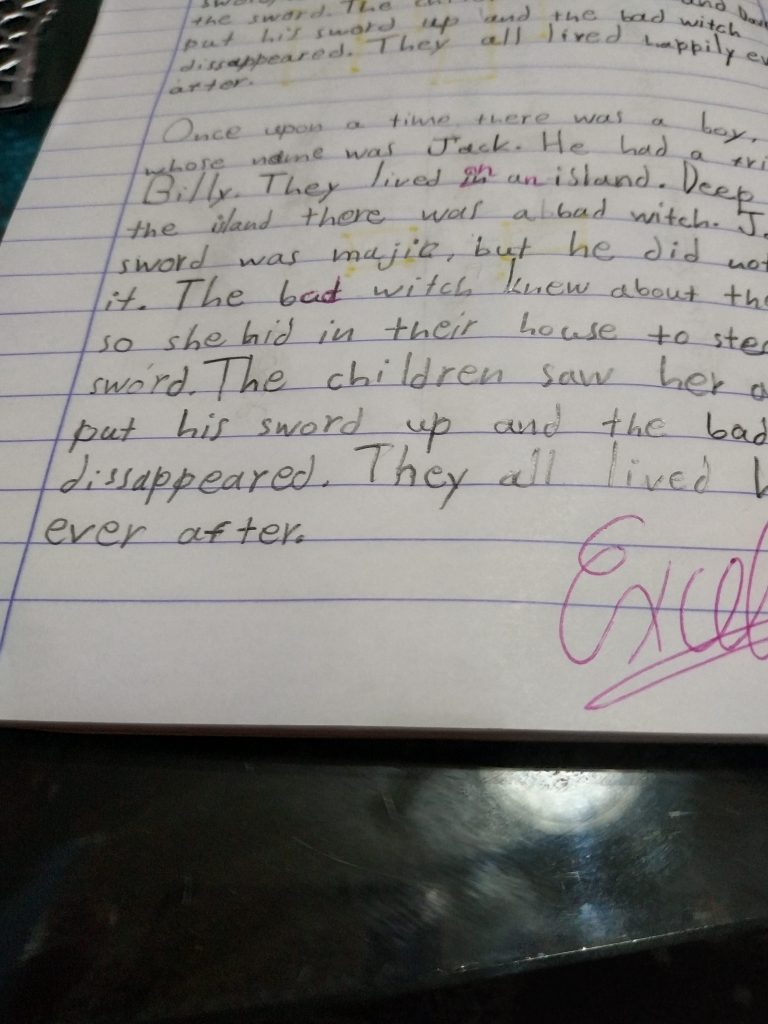 the sword. The
put his sword up and the bad witch
dissappeared. They all lived happily
after.
Once upon a time there was a boy,
whose name was Jack. He had a
Billy. They lived on an island. Deep
the island there was a bad witch.
sword was majic, but he did not
it. The bad witch knew about the
so she hid in their house to
sword. The children saw her
put his sword up and the bad
dissappeared. They all lived
ever after.